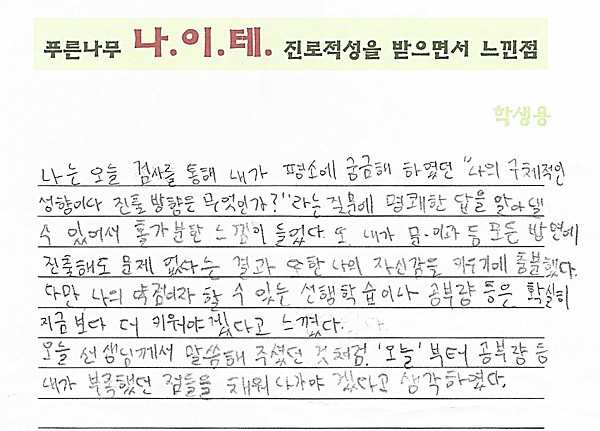 푸른나무 나.이.테. 진로적성을 받으면서 느낀점
학생용
나는 오늘 검사를 통해 내가 평소에 궁금해 하였던 "나의 구체적인
성향이나 진출 방향은 무엇인가?"라는 질문에 명쾌한 답을 알아낼
수 있어서 홀가분한 느낌이 들었다. 또 내가 문·이과 등 모든 방면에
진출해도 문제 없다는 결과 또한 나의 자신감을 키우기에 충분했다.
다만 나의 약점이자 할 수 있는 선행학습이나 공부량 등은 확실히
지금보다 더 키워야겠다고 느꼈다.
오늘 선생님께서 말씀해 주셨던 것처럼, '오늘'부터 공부량 등
내가 부족했던 점들을 채워 나가야 겠다고 생각하였다.